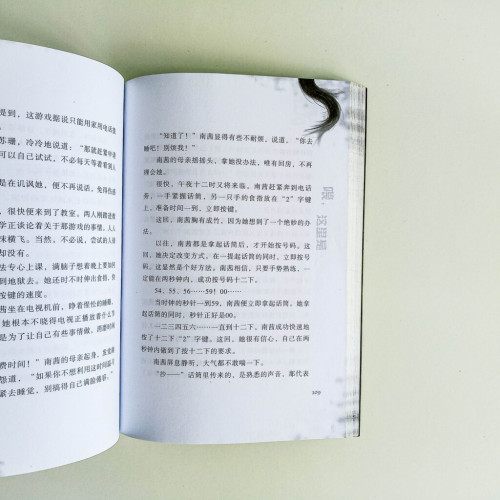 是到，这游戏据说只能用家用电话
苏珊，冷冷地说道：“那就赶紧申请
可以自己试试，不必每天等着看别人
是在讥讽她，便不再说话，免得伤感
，很快便来到了教室。两人刚踏进教
学正谈论着关于那游戏的事情，人人
沫横飞。当然，不必说，尝试的人很
却没有。
法专心上课，满脑子想着晚上要如何
到地狱去。她还时不时伸出食指，做
按键的速度。
茜坐在电视机前，睁着惺忪的睡眼，
她根本不晓得电视正播放着什么节
是为了让自己有些事情做，消磨时间
费时间！”南茜的母亲起身，发觉她
怨道，“如果你不想利用这时间温习
紧去睡觉，别搞得自己满脸倦容。”
“知道了！”南茜显得有些不耐烦，说道，“你去
睡吧！别烦我！”
南茜的母亲摇摇头，拿她没办法，唯有回房，不再
理会她。
很快，午夜十二时又将来临。南茜赶紧奔到电话
旁，一手紧握话筒，另一只手的食指放在“2”字键
上，准备时间一到，立即按键。
这回，南茜胸有成竹，因为她想到了一个绝妙的办
法。
以往，南茜都是拿起话筒后，才开始按号码。这
回，她决定改变方式，在一提起话筒的同时，立即按号
码。这显然是个好方法。南茜相信，只要手势熟练，一
定能在两秒钟内，成功按号码十二下。
54、55、56……59！00……
当时钟的秒针一到59，南茜便立即拿起话筒，她拿
起话筒的同时，秒针正好是00。
一二三四五六……直到十二下，南茜成功快速地
按了十二下“2”字键。这回，她很有信心，自己在两
秒钟内做到了按十二下的要求。
南茜屏息静听，大气都不敢喘一下。
“沙——”话筒里传来的，是熟悉的声音。那代表
喂，这里是
209